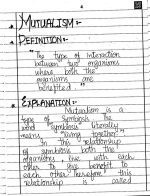 MUTUALISM:-
DEFINITION:-
"The type of interaction
between two organisms
where both the
organisms are
benefited."
EXPLANATION:-
Mutualism is a
type of Symbiosis the
word "symbiosis" literally
means "living together"
In this relationship
of symbiosis both the
organisms live with each
other & give benefit to
each other therefore this
relationship is called